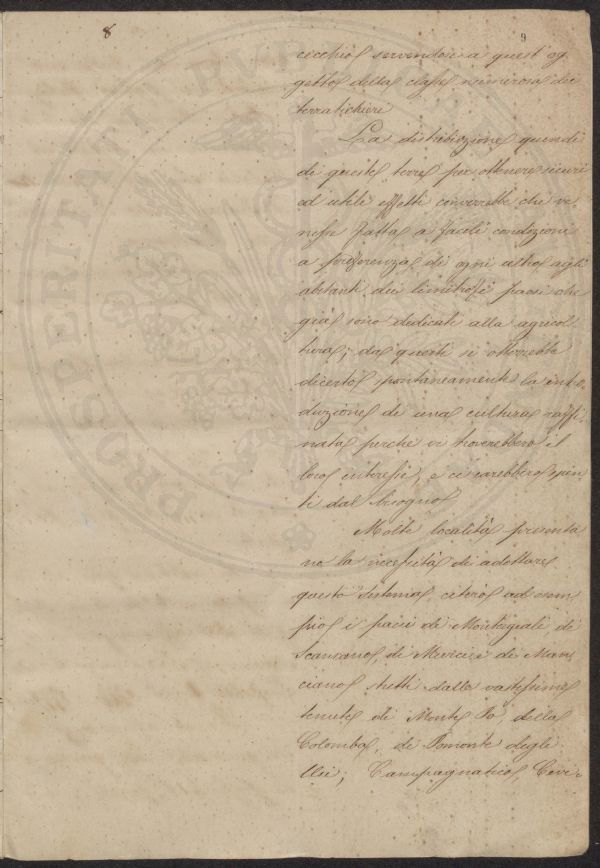 8
9
cecchio servendosi a quest og
getto della classe numerosa dei
terratichieri
La distribuzione quindi
di queste terre per ottenere sicuri
ed utili effetti converrebbe che ve
nisse fatta a facili condizioni
a preferenza di ogni altro agli
abitanti dei limitrofi paesi che
già sono dedicati alla agricol
tura; da questi si otterrebbe
dicerto spontaneamente la intro
duzione di una cultura raffi
nata perche vi troverebbero il
loro interesse, e ci sarebbero spin
ti dal bisogno
Molte località presenta
no la necessità di adottare
questo sistema, citerò ad esem
pio i paesi di Montorgiali, di
Scansano, di Murci e di Man
ciano stretti dalle vastissime
tenute di Monte Pò, della
Colomba, di Pomonte degli
Campagnatico,
PROSPERITATI PVBLICAE